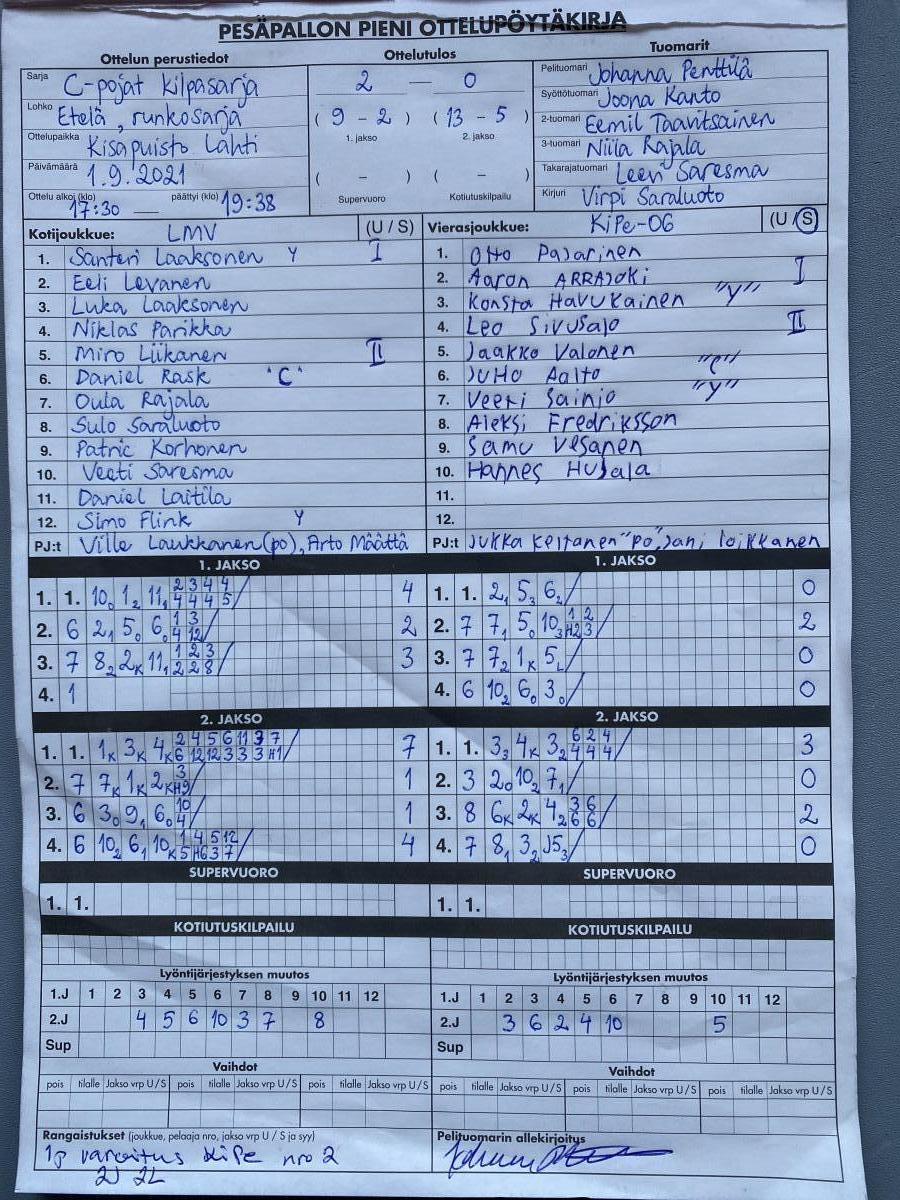 PESÄPALLON PIENI OTTELUPÖYTÄKIRJA
Ottelun perustiedot
Sarja C-pojat kilpasarja
Lohko Etelä, runkosarja
Ottelupaikka Kisapuisto Lahti
Päivämäärä 1.9.2021
Ottelu alkoi (klo) 17:30 — päättyi (klo) 19:38
Ottelutulos
2 — 0
( 9 - 2 ) ( 13 - 5 )
1. jakso 2. jakso
( - ) ( - )
Supervuoro Kotiutuskilpailu
Tuomarit
Pelituomari Johanna Penttilä
Syöttötuomari Joona Kanto
2-tuomari Eemil Taavitsainen
3-tuomari Niila Rajala
Takarajatuomari Leevi Saresma
Kirjuri Virpi Saraluoto
Kotijoukkue: LMV (U / S)
1. Santeri Laaksonen Y I
2. Eeli Levanen
3. Luka Laaksonen
4. Niklas Parikka
5. Miro Liikanen II
6. Daniel Rask "C"
7. Oula Rajala
8. Sulo Saraluoto
9. Patric Korhonen
10. Veeti Saresma
11. Daniel Laitila
12. Simo Flink Y
PJ:t Ville Laukkanen (po), Arto Määttä
Vierasjoukkue: KiPe-06 (U / S)
1. Otto Pajarinen
2. Aaron ARRAJOKI I
3. Konsta Havukainen "Y"
4. Leo Sivusalo II
5. Jaakko Valonen
6. JUHO Aalto "C"
7. Veeti Sainio "Y"
8. Aleksi Fredriksson
9. Samu Vesanen
10. Hannes Hujala
11.
12.
PJ:t Jukka Keltanen "po", Jani loikkanen
1. JAKSO
1. 1. 10₀ 1₂ 11₁ 2 3 4 4 / 4
4 4 4 5
2. 6 2₁ 5₀ 6₀ 1 3 / 2
4 12
3. 7 8₂ 2K 11₁ 1 2 3 / 3
2 2 8
4. 1
1. JAKSO
1. 1. 2₁ 5₃ 6₂ / 0
2. 7 7₁ 5₀ 10₃ 1 2 / 2
H2 3
3. 7 7₂ 1K 5L / 0
4. 6 10₂ 6₀ 3₀ / 0
2. JAKSO
1. 1. 1K 3K 4K 2 4 5 6 11 3 7 / 7
6 12 12 3 3 3 H1
2. 7 7K 1K 2K 3 / 1
H9
3. 6 3₀ 9₁ 6₀ 10 / 1
4
4. 6 10₂ 6₁ 10K 1 4 5 12 / 4
5 H6 3 7
2. JAKSO
1. 1. 3₃ 4K 3₂ 6 2 4 / 3
4 4 4
2. 3 2₀ 10₂ 7₁ / 0
3. 8 6K 2K 4₂ 3 6 / 2
6 6
4. 7 8₁ 3₂ J5₃ / 0
SUPERVUORO
1. 1.
SUPERVUORO
1. 1.
KOTIUTUSKILPAILU
KOTIUTUSKILPAILU
Lyöntijärjestyksen muutos
1.J 1 2 3 4 5 6 7 8 9 10 11 12
2.J 4 5 6 10 3 7 8
Sup
Lyöntijärjestyksen muutos
1.J 1 2 3 4 5 6 7 8 9 10 11 12
2.J 3 6 2 4 10 5
Sup
Vaihdot
pois tilalle Jakso vrp U / S pois tilalle Jakso vrp U / S pois tilalle Jakso vrp U / S
Vaihdot
pois tilalle Jakso vrp U / S pois tilalle Jakso vrp U / S pois tilalle Jakso vrp U / S
Rangaistukset (joukkue, pelaaja nro, jakso vrp U / S ja syy)
1p varoitus KiPe nro 2
2J 2L
Pelituomarin allekirjoitus